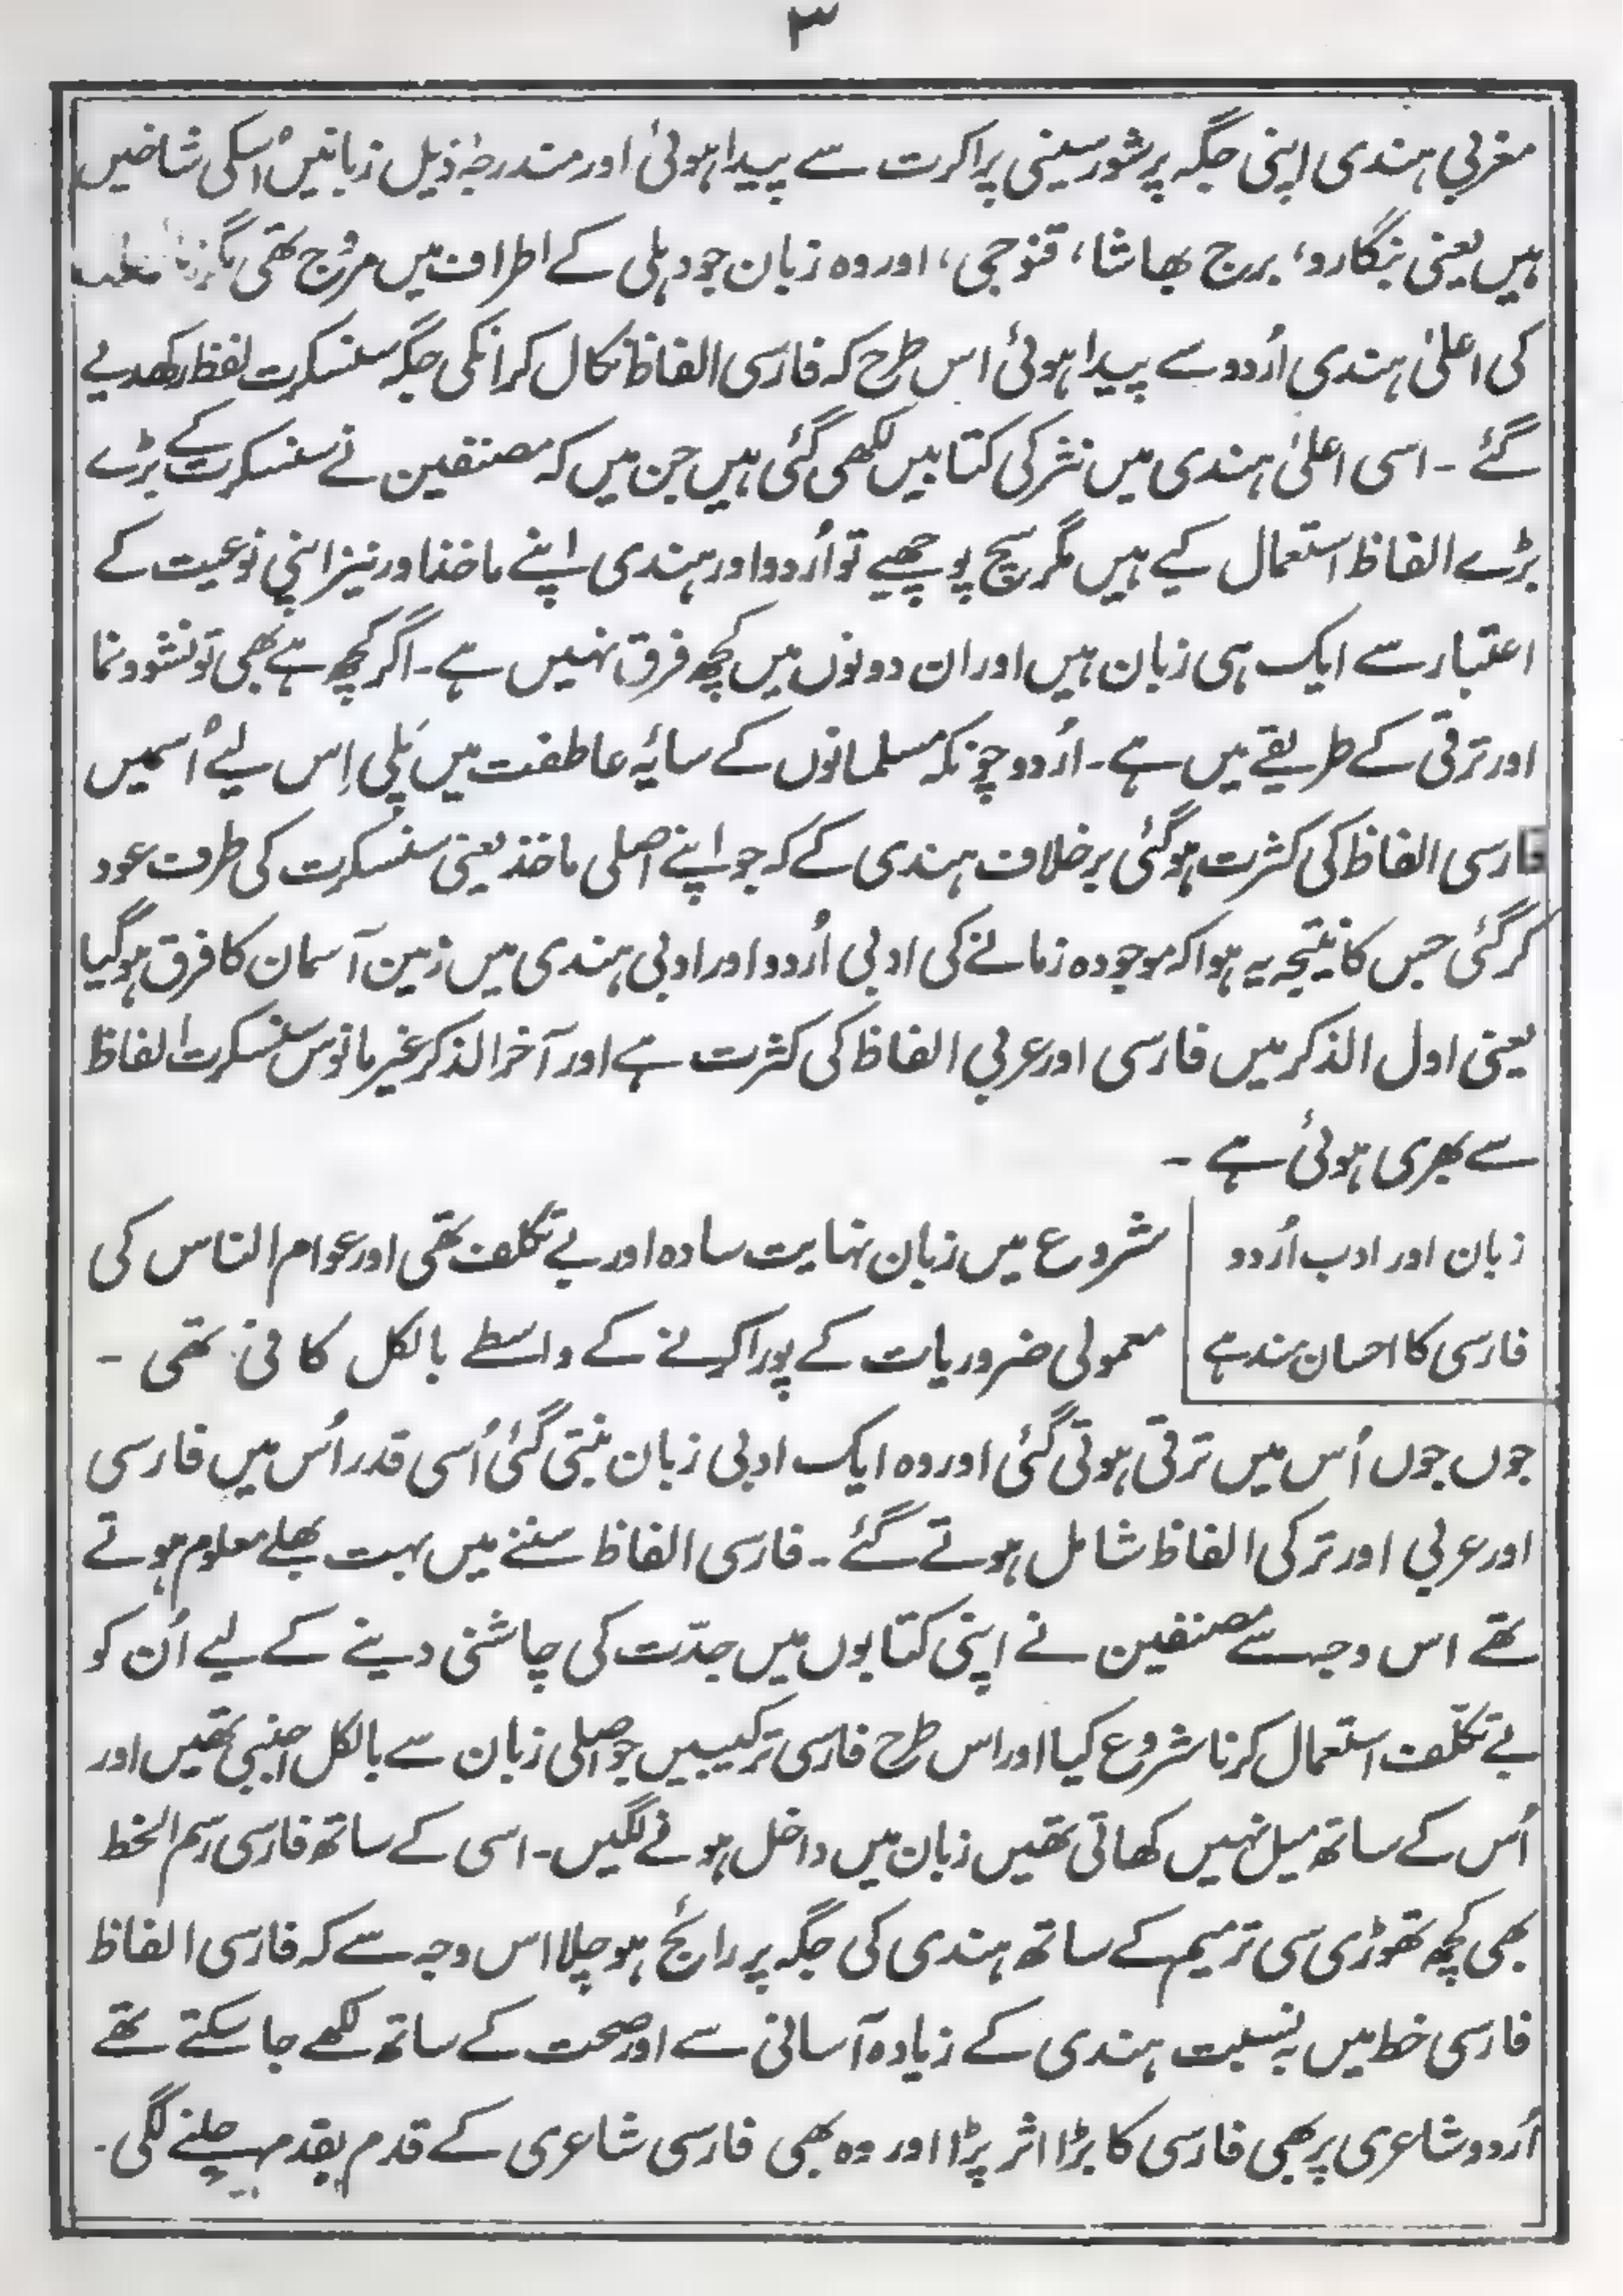 ۳
مغربی ہندی اپنی جگہ پر شورسینی پراکرت سے پیدا ہوئی اور مندرجۂ ذیل زبانیں اُسکی شاخیں
ہیں یعنی بنگارو، برج بھاشا، قنوجی، اور وہ زبان جو دہلی کے اطراف میں مروّج تھی
کی اعلیٰ ہندی اُردو سے پیدا ہوئی اس طرح کہ فارسی الفاظ نکال کر انکی جگہ سنسکرت لفظ رکھدیے
گئے ۔ اسی اعلیٰ ہندی میں نثر کی کتابیں لکھی گئی ہیں جن میں کہ مصنفین نے سنسکرت کے بڑے
بڑے الفاظ استعمال کیے ہیں مگر سچ پوچھیے تو اُردو اور ہندی اپنے ماخذ اور نیز اپنی نوعیت کے
اعتبار سے ایک ہی زبان ہیں اور ان دونوں میں کچھ فرق نہیں ہے ۔ اگر کچھ ہے بھی تو نشوونما
اور ترقی کے طریقے میں ہے ۔ اُردو چونکہ مسلمانوں کے سایۂ عاطفت میں پَلی اِس لیے اُسمیں
فارسی الفاظ کی کثرت ہوگئی برخلاف ہندی کے کہ جو اپنے اصلی ماخذ یعنی سنسکرت کی طرف عود
کر گئی جس کا نتیجہ یہ ہوا کہ موجودہ زمانے کی ادبی اُردو اور ادبی ہندی میں زمین آسمان کا فرق ہوگیا
یعنی اول الذکر میں فارسی اور عربی الفاظ کی کثرت ہے اور آخر الذکر غیر مانوس سنسکرت الفاظ
سے بھری ہوئی ہے ۔
زبان اور ادب اُردو
فارسی کا احسان مند ہے
شروع میں زبان نہایت سادہ اور بے تکلف تھی اور عوام الناس کی
معمولی ضروریات کے پورا کرنے کے واسطے بالکل کافی تھی ۔
جوں جوں اُس میں ترقی ہوتی گئی اور وہ ایک ادبی زبان بنتی گئی اُسی قدر اُس میں فارسی
اور عربی اور ترکی الفاظ شامل ہوتے گئے ۔ فارسی الفاظ سننے میں بہت بھلے معلوم ہوتے
تھے اس وجہ سے مصنفین نے اپنی کتابوں میں جدّت کی چاشنی دینے کے لیے اُن کو
بے تکلّف استعمال کرنا شروع کیا اور اس طرح فارسی ترکیبیں جو اصلی زبان سے بالکل اجنبی تھیں اور
اُس کے ساتھ میل نہیں کھاتی تھیں زبان میں داخل ہونے لگیں ۔ اسی کے ساتھ فارسی رسم الخط
بھی کچھ تھوڑی سی ترمیم کے ساتھ ہندی کی جگہ پر رائج ہو چلا اس وجہ سے کہ فارسی الفاظ
فارسی خط میں بہ نسبت ہندی کے زیادہ آسانی سے اور صحت کے ساتھ لکھے جا سکتے تھے
اُردو شاعری پر بھی فارسی کا بڑا اثر پڑا اور وہ بھی فارسی شاعری کے قدم بقدم چلنے لگی ۔